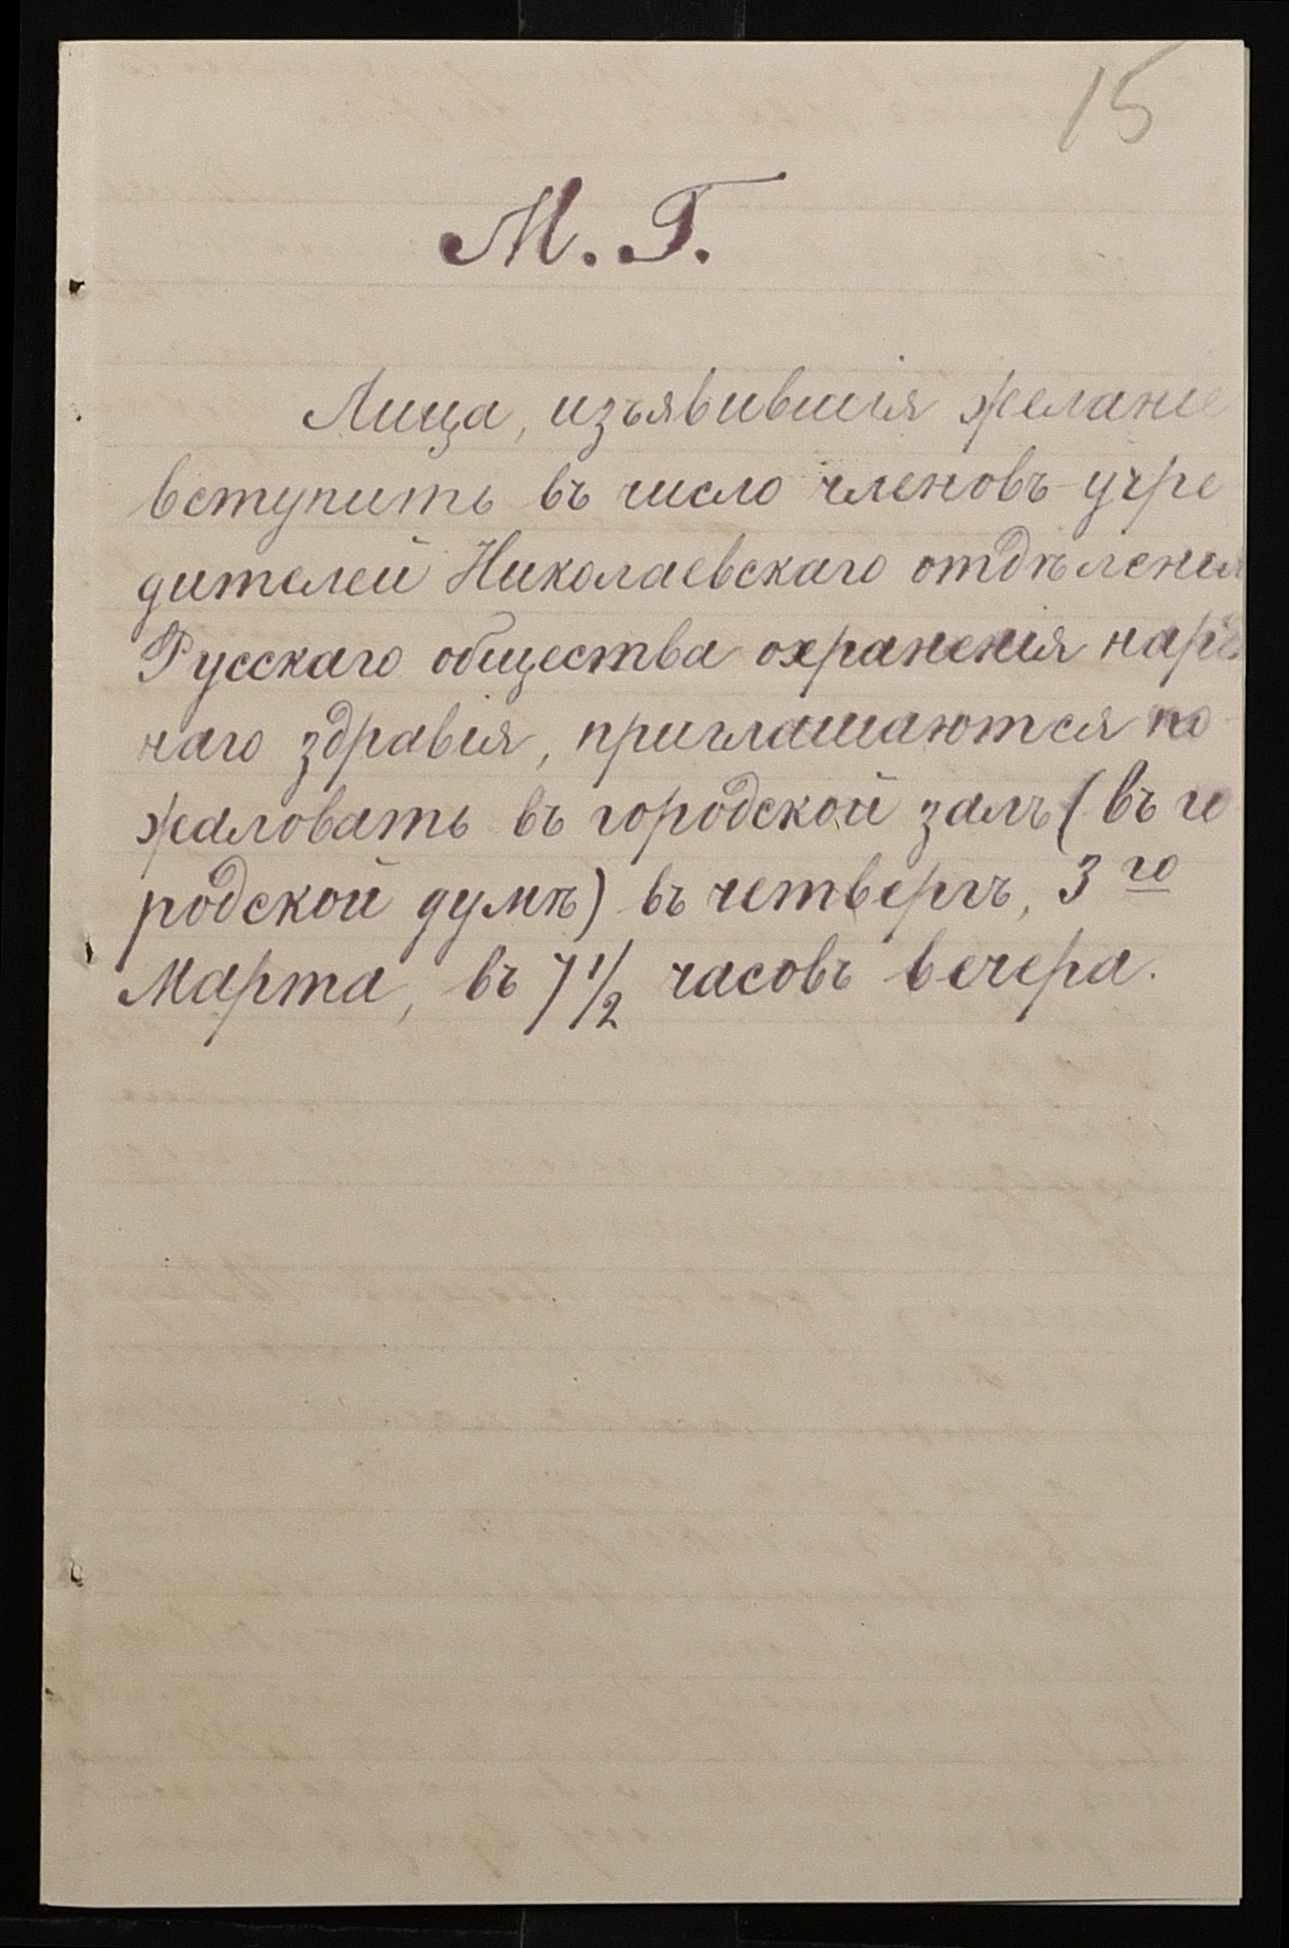 15
М. Г.
Лица, изъявившія желаніе
вступить въ число членовъ-учре
дителей Николаевскаго отдѣленія
Русскаго общества охраненія нарѣ
наго здравія, приглашаются по-
жаловать въ городской залъ (въ го
родской думѣ) въ четвергъ, 3го
Марта, въ 7 1/2 часовъ вечера.